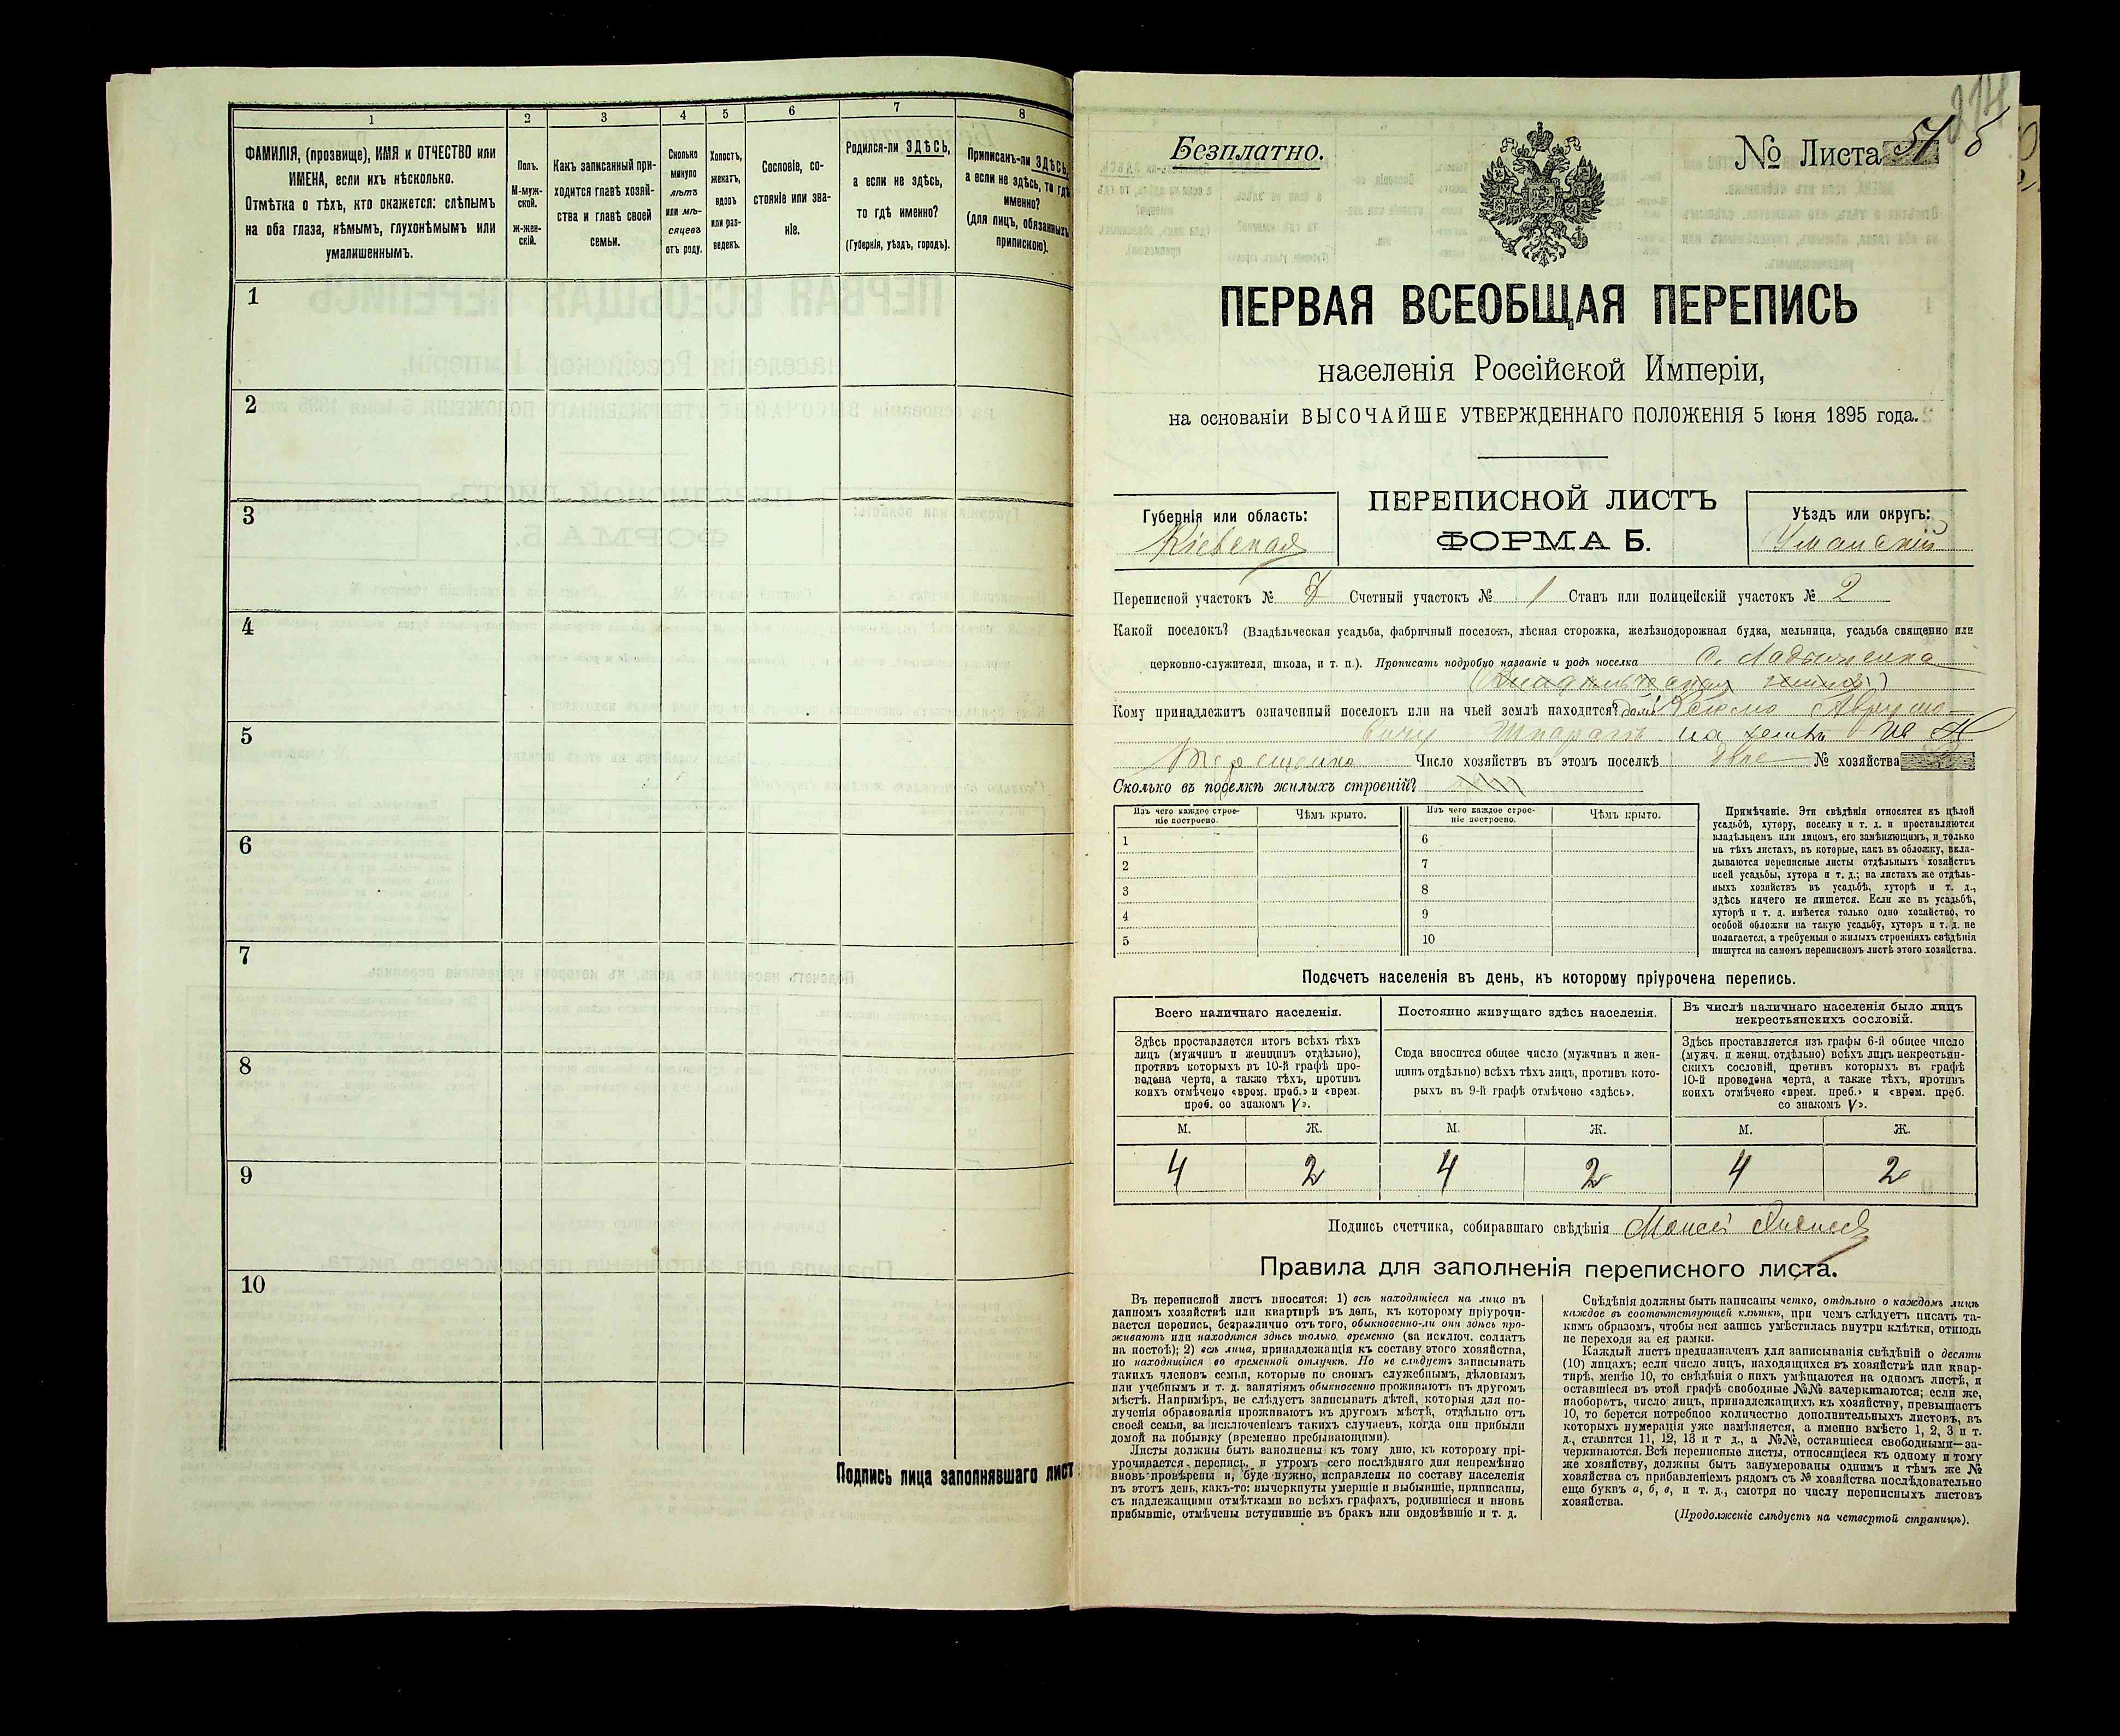 1
2
3
4
5
6
7
8
ФАМИЛІЯ, (прозвище), ИМЯ и ОТЧЕСТВО или
ИМЕНА, если ихъ нѣсколько.
Отмѣтка о тѣхъ, кто окажется: слѣпымъ
на оба глаза, нѣмымъ, глухонѣмымъ или
умалишеннымъ.
Полъ.
М-муж-
ской.
Ж-жен-
скій.
Какъ записанный при-
ходится главѣ хозяй-
ства и главѣ своей
семьи.
Сколько
минуло
лѣтъ
или мѣ-
сяцевъ
отъ роду.
Холостъ,
женатъ,
вдовъ
или раз-
веденъ.
Сословіе, со-
стояніе или зва-
ніе.
Родился-ли ЗДѢСЬ,
а если не здѣсь,
то гдѣ именно?
(Губернія, уѣздъ, городъ).
Приписанъ-ли ЗДѢСЬ,
а если не здѣсь, то гдѣ
именно?
(для лицъ, обязанныхъ
припискою).
1
2
3
4
5
6
7
8
9
10
Подпись лица заполнявшаго лист
Безплатно.
№ Листа 54 б
ПЕРВАЯ ВСЕОБЩАЯ ПЕРЕПИСЬ
населенія Россійской Имперіи,
на основаніи ВЫСОЧАЙШЕ УТВЕРЖДЕННАГО ПОЛОЖЕНІЯ 5 Іюня 1895 года.
Губернія или область:
Кіевская
ПЕРЕПИСНОЙ ЛИСТЪ
ФОРМА Б.
Уѣздъ или округъ:
Уманскій
Переписной участокъ № Счетный участокъ № 1 Станъ или полицейскій участокъ № 2
Какой поселокъ? (Владѣльческая усадьба, фабричный поселокъ, лѣсная сторожка, желѣзнодорожная будка, мельница, усадьба священно или
церковно-служителя, школа, и т. п.). Прописать подробно названіе и родъ поселка с. Ладыженка
Кому принадлежитъ означенный поселокъ или на чьей землѣ находится? домъ
на землѣ
Терещенко Число хозяйствъ въ этомъ поселкѣ два № хозяйства
Сколько въ поселкѣ жилыхъ строеній?
Изъ чего каждое строе-
ніе построено.
Чѣмъ крыто.
Изъ чего каждое строе-
ніе построено.
Чѣмъ крыто.
1
2
3
4
5
6
7
8
9
10
Примѣчаніе. Эти свѣдѣнія относятся къ цѣлой
усадьбѣ, хутору, поселку и т. д. и проставляются
владѣльцемъ или лицомъ, его замѣняющимъ, и только
на тѣхъ листахъ, въ которые, какъ въ обложку, вкла-
дываются переписные листы отдѣльныхъ хозяйствъ
всей усадьбы, хутора и т. д.; на листахъ же отдѣль-
ныхъ хозяйствъ въ усадьбѣ, хуторѣ и т. д.,
здѣсь ничего не пишется. Если же въ усадьбѣ,
хуторѣ и т. д. имѣется только одно хозяйство, то
особой обложки на такую усадьбу, хуторъ и т. д. не
полагается, а требуемыя о жилыхъ строеніяхъ свѣдѣнія
пишутся на самомъ переписномъ листѣ этого хозяйства.
Подсчетъ населенія въ день, къ которому пріурочена перепись.
Всего наличнаго населенія.
Здѣсь проставляется итогъ всѣхъ тѣхъ
лицъ (мужчинъ и женщинъ отдѣльно),
противъ которыхъ въ 10-й графѣ про-
ведена черта, а также тѣхъ, противъ
коихъ отмѣчено «врем. преб.» и «врем.
преб. со знакомъ V».
Постоянно живущаго здѣсь населенія.
Сюда вносится общее число (мужчинъ и жен-
щинъ отдѣльно) всѣхъ тѣхъ лицъ, противъ кото-
рыхъ въ 9-й графѣ отмѣчено «здѣсь».
Въ числѣ наличнаго населенія было лицъ
некрестьянскихъ сословій.
Здѣсь проставляется изъ графы 6-й общее число
(мужч. и женщ. отдѣльно) всѣхъ лицъ некрестьян-
скихъ сословій, противъ которыхъ въ графѣ
10-й проведена черта, а также тѣхъ, противъ
коихъ отмѣчено «врем. преб.» и «врем. преб.
со знакомъ V».
М. Ж. М. Ж. М. Ж.
4 2 4 2 4 2
Подпись счетчика, собиравшаго свѣдѣнія Моисей
Правила для заполненія переписного листа.
Въ переписной листъ вносятся: 1) всѣ находящіеся на лицо въ
данномъ хозяйствѣ или квартирѣ въ день, къ которому пріурочи-
вается перепись, безразлично отъ того, обыкновенно-ли они здѣсь про-
живаютъ или находятся здѣсь только временно (за исключ. солдатъ
на постоѣ); 2) всѣ лица, принадлежащія къ составу этого хозяйства,
но находящіяся во временной отлучкѣ. Но не слѣдуетъ записывать
такихъ членовъ семьи, которые по своимъ служебнымъ, дѣловымъ
или учебнымъ и т. д. занятіямъ обыкновенно проживаютъ въ другомъ
мѣстѣ. Напримѣръ, не слѣдуетъ записывать дѣтей, которыя для по-
лученія образованія проживаютъ въ другомъ мѣстѣ, отдѣльно отъ
своей семьи, за исключеніемъ такихъ случаевъ, когда они прибыли
домой на побывку (временно пребывающими).
Листы должны быть заполнены къ тому дню, къ которому прі-
урочивается перепись, и утромъ сего послѣдняго дня непремѣнно
вновь провѣрены и, буде нужно, исправлены по составу населенія
въ этотъ день, какъ-то: вычеркнуты умершіе и выбывшіе, приписаны,
съ надлежащими отмѣтками во всѣхъ графахъ, родившіеся и вновь
прибывшіе, отмѣчены вступившіе въ бракъ или овдовѣвшіе и т. д.
Свѣдѣнія должны быть написаны четко, отдѣльно о каждомъ лицѣ
каждое въ соотвѣтствующей клѣткѣ, при чемъ слѣдуетъ писать та-
кимъ образомъ, чтобы вся запись умѣстилась внутри клѣтки, отнюдь
не переходя за ея рамки.
Каждый листъ предназначенъ для записыванія свѣдѣній о десяти
(10) лицахъ; если число лицъ, находящихся въ хозяйствѣ или квар-
тирѣ, менѣе 10, то свѣдѣнія о нихъ умѣщаются на одномъ листѣ, и
оставшіеся въ этой графѣ свободные №№ зачеркиваются; если же,
наоборотъ, число лицъ, принадлежащихъ къ хозяйству, превышаетъ
10, то берется потребное количество дополнительныхъ листовъ, въ
которыхъ нумерація уже измѣняется, а именно вмѣсто 1, 2, 3 и т.
д., ставится 11, 12, 13 и т д., а №№, оставшіеся свободными—за-
черкиваются. Всѣ переписные листы, относящіеся къ одному и тому
же хозяйству, должны быть занумерованы однимъ и тѣмъ же №
хозяйства съ прибавленіемъ рядомъ съ № хозяйства послѣдовательно
еще буквъ а, б, в, и т. д., смотря по числу переписныхъ листовъ
хозяйства.
(Продолженіе слѣдуетъ на четвертой страницѣ).